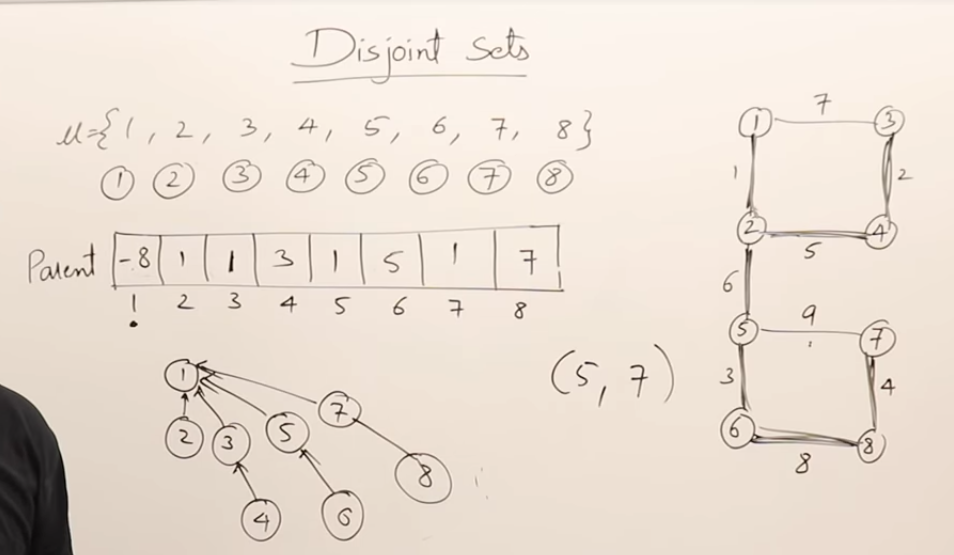 Disjoint Sets
μ={1, 2, 3, 4, 5, 6, 7, 8}
1 2 3 4 5 6 7 8
Parent -8 1 1 3 1 5 1 7
1 2 3 4 5 6 7 8
1
2 3 5 7
4 6 8
(5, 7)
1 7 3
1 2
2 5 4
6
5 9 7
3 4
6 8 8